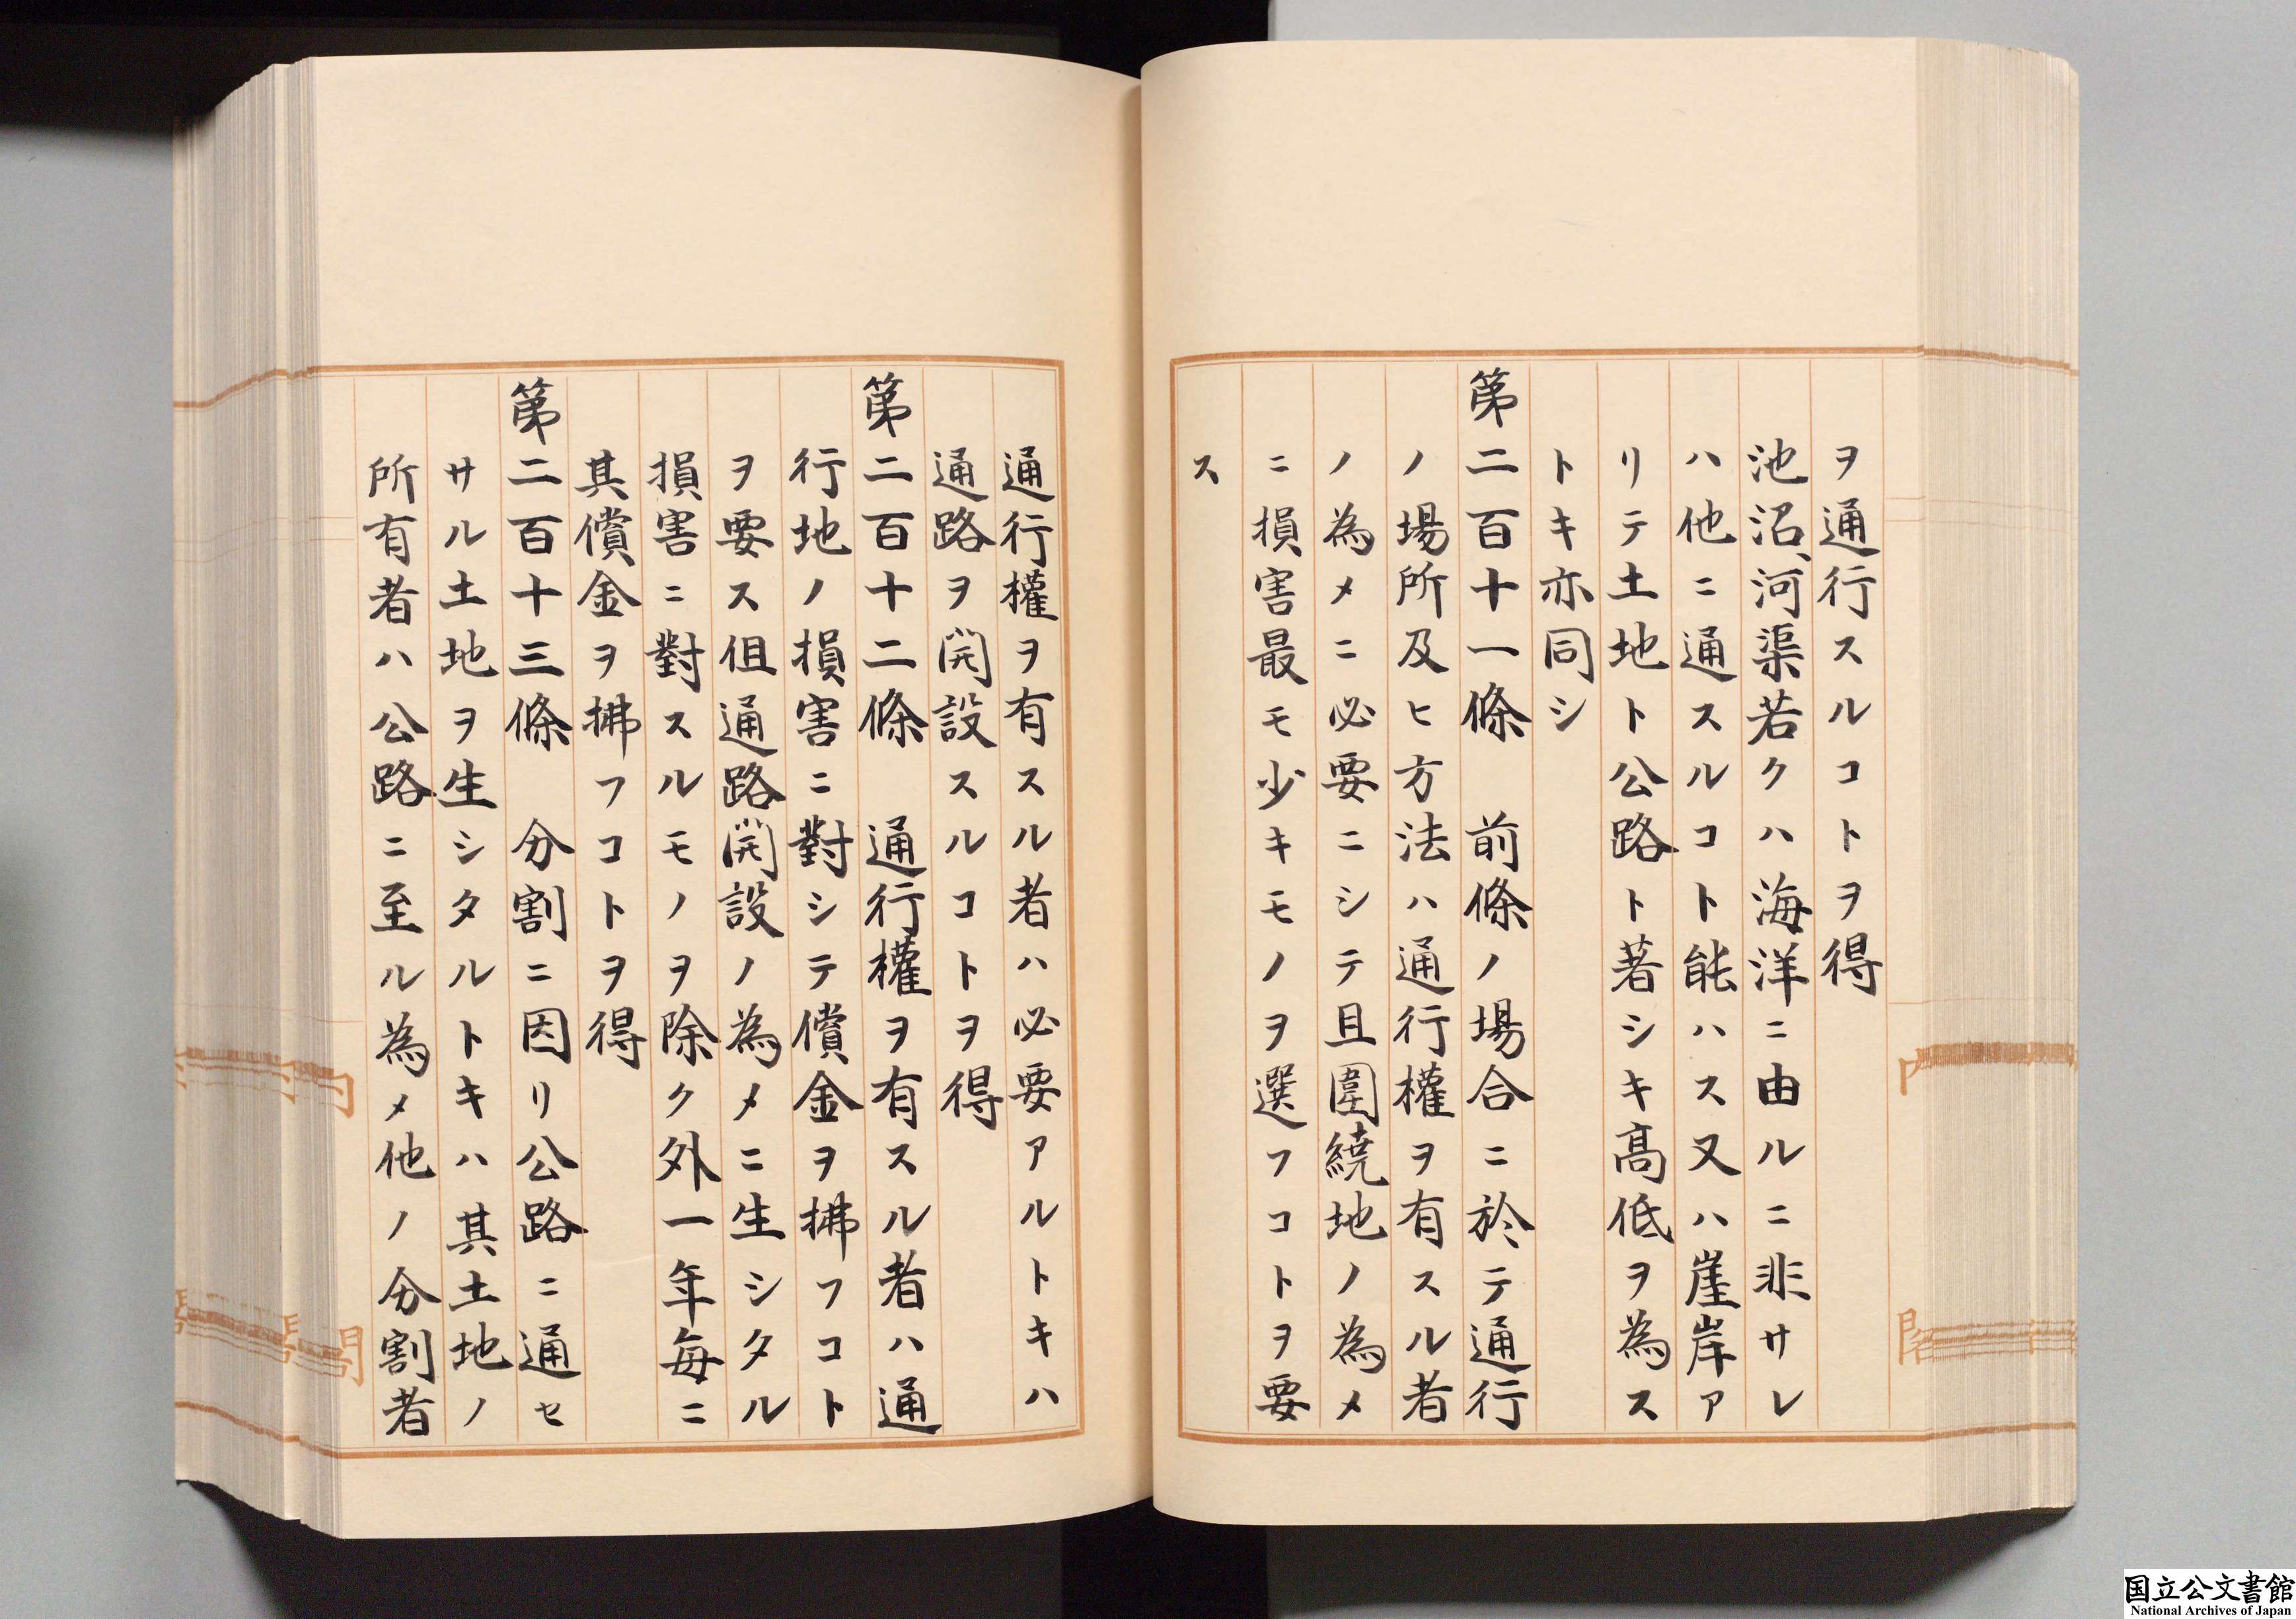 ヲ通行スルコトヲ得
池沼、河渠若クハ海洋ニ由ルニ非サレ
ハ他ニ通スルコト能ハス又ハ崖岸ア
リテ土地ト公路ト著シキ高低ヲ為ス
トキ亦同シ
第二百十一條　前條ノ場合ニ於テ通行
ノ場所及ヒ方法ハ通行權ヲ有スル者
ノ為メニ必要ニシテ且圍繞地ノ為メ
ニ損害最モ少キモノヲ選フコトヲ要
ス
通行權ヲ有スル者ハ必要アルトキハ
通路ヲ開設スルコトヲ得
第二百十二條　通行權ヲ有スル者ハ通
行地ノ損害ニ對シテ償金ヲ拂フコト
ヲ要ス但通路開設ノ為メニ生シタル
損害ニ對スルモノヲ除ク外一年毎ニ
其償金ヲ拂フコトヲ得
第二百十三條　分割ニ因リ公路ニ通セ
サル土地ヲ生シタルトキハ其土地ノ
所有者ハ公路ニ至ル為メ他ノ分割者
内
閣
内
閣
国立公文書館
National Archives of Japan